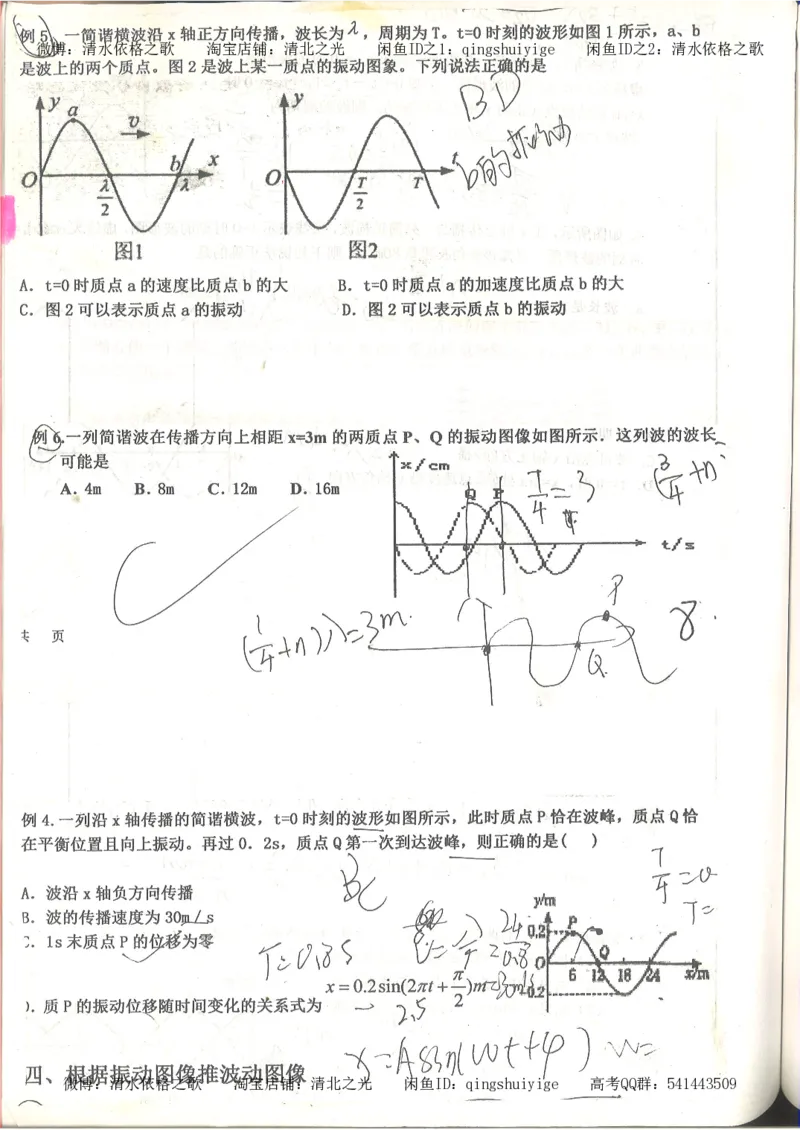 例 5. 一简谐横波沿 x 轴正方向传播，波长为 λ，周期为 T。t=0 时刻的波形如图 1 所示，a、b
微博：清水依格之歌 淘宝店铺：清北之光 闲鱼ID之1：qingshuiyige 闲鱼ID之2：清水依格之歌
是波上的两个质点。图 2 是波上某一质点的振动图象。下列说法正确的是
BD
b的振动
y a v b x O λ/2 λ
y O T/2 T t
图1 图2
A. t=0 时质点 a 的速度比质点 b 的大 B. t=0 时质点 a 的加速度比质点 b 的大
C. 图 2 可以表示质点 a 的振动 D. 图 2 可以表示质点 b 的振动
例 6.一列简谐波在传播方向上相距 x=3m 的两质点 P、Q 的振动图像如图所示. 这列波的波长
可能是
A. 4m B. 8m C. 12m D. 16m
x/cm Q P t/s
T/4 = 3
(3/4+n
P
(1/4+n)λ=3m
Q
8
共 页
例 4.一列沿 x 轴传播的简谐横波，t=0 时刻的波形如图所示，此时质点 P 恰在波峰，质点 Q 恰
在平衡位置且向上振动。再过 0．2s，质点 Q 第一次到达波峰，则正确的是( )
BC
A. 波沿 x 轴负方向传播
B. 波的传播速度为 30m／s
C. 1s 末质点 P 的位移为零
T/4=0
T=
T=0.8s
24/0.8
y/m P 0.2 Q O 6 12 18 24 x/m -0.2
x = 0.2sin(2πt + π/2)m
=30m/s
D. 质 P 的振动位移随时间变化的关系式为
2.5
x=Asin(wt+φ) w=
四、根据振动图像推波动图像
微博：清水依格之歌 淘宝店铺：清北之光 闲鱼ID：qingshuiyige 高考QQ群：541443509